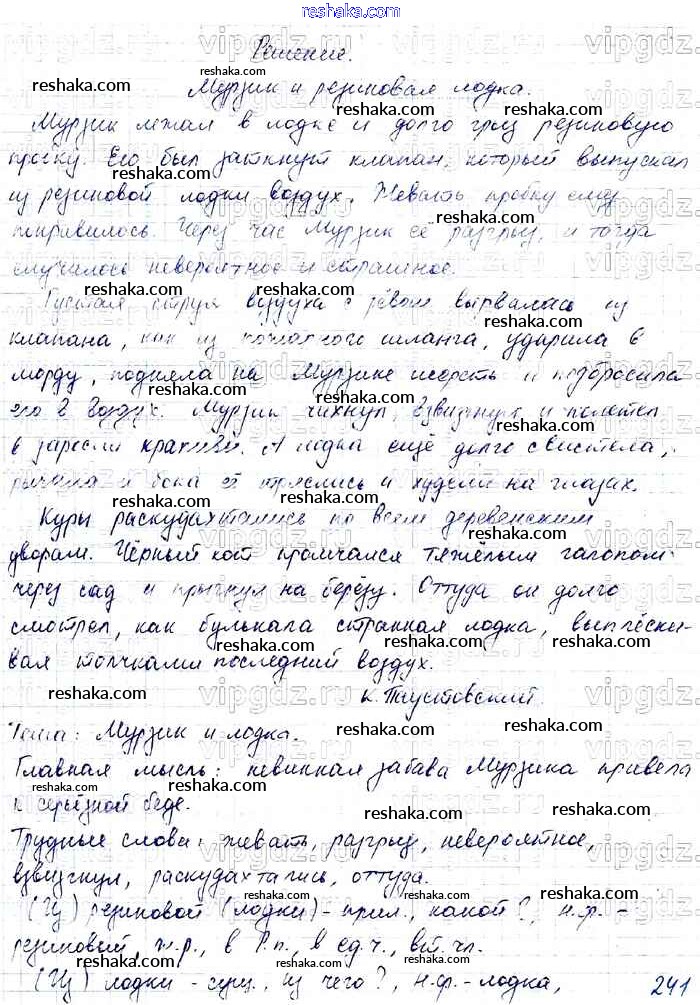 reshaka.com
Решение.
Мурзик и резиновая лодка.
Мурзик лежал в лодке и долго грыз резиновую
пробку. Ею был заткнут клапан, который выпускал
из резиновой лодки воздух. Жевать пробку ему
нравилось. Через час Мурзик её разгрыз, и тогда
случилось невероятное и страшное.
Густая струя воздуха с рёвом вырвалась из
клапана, как из пожарного шланга, ударила в
морду, подняла на Мурзике шерсть и подбросила
его в воздух. Мурзик чихнул, взвизгнул и полетел
в заросли крапивы. А лодка ещё долго свистела,
рычала и бока её тряслись и худели на глазах.
Куры раскудахтались по всем деревенским
дворам. Чёрный кот промчался тяжёлым галопом
через сад и прыгнул на берёзу. Оттуда он долго
смотрел, как булькала странная лодка, выплёски-
вая толчками последний воздух.
К. Паустовский.
Тема: Мурзик и лодка.
Главная мысль: невинная забава Мурзика привела
к серьёзной беде.
Трудные слова: жевать, разгрыз, невероятное,
взвизгнул, раскудахтались, оттуда.
(Из) резиновой (лодки) - прил., какой?, н.ф. -
резиновый, ж.р., в Р.п., в ед.ч., вт. чл.
(Из) лодки - сущ., из чего?, н.ф. - лодка,
241